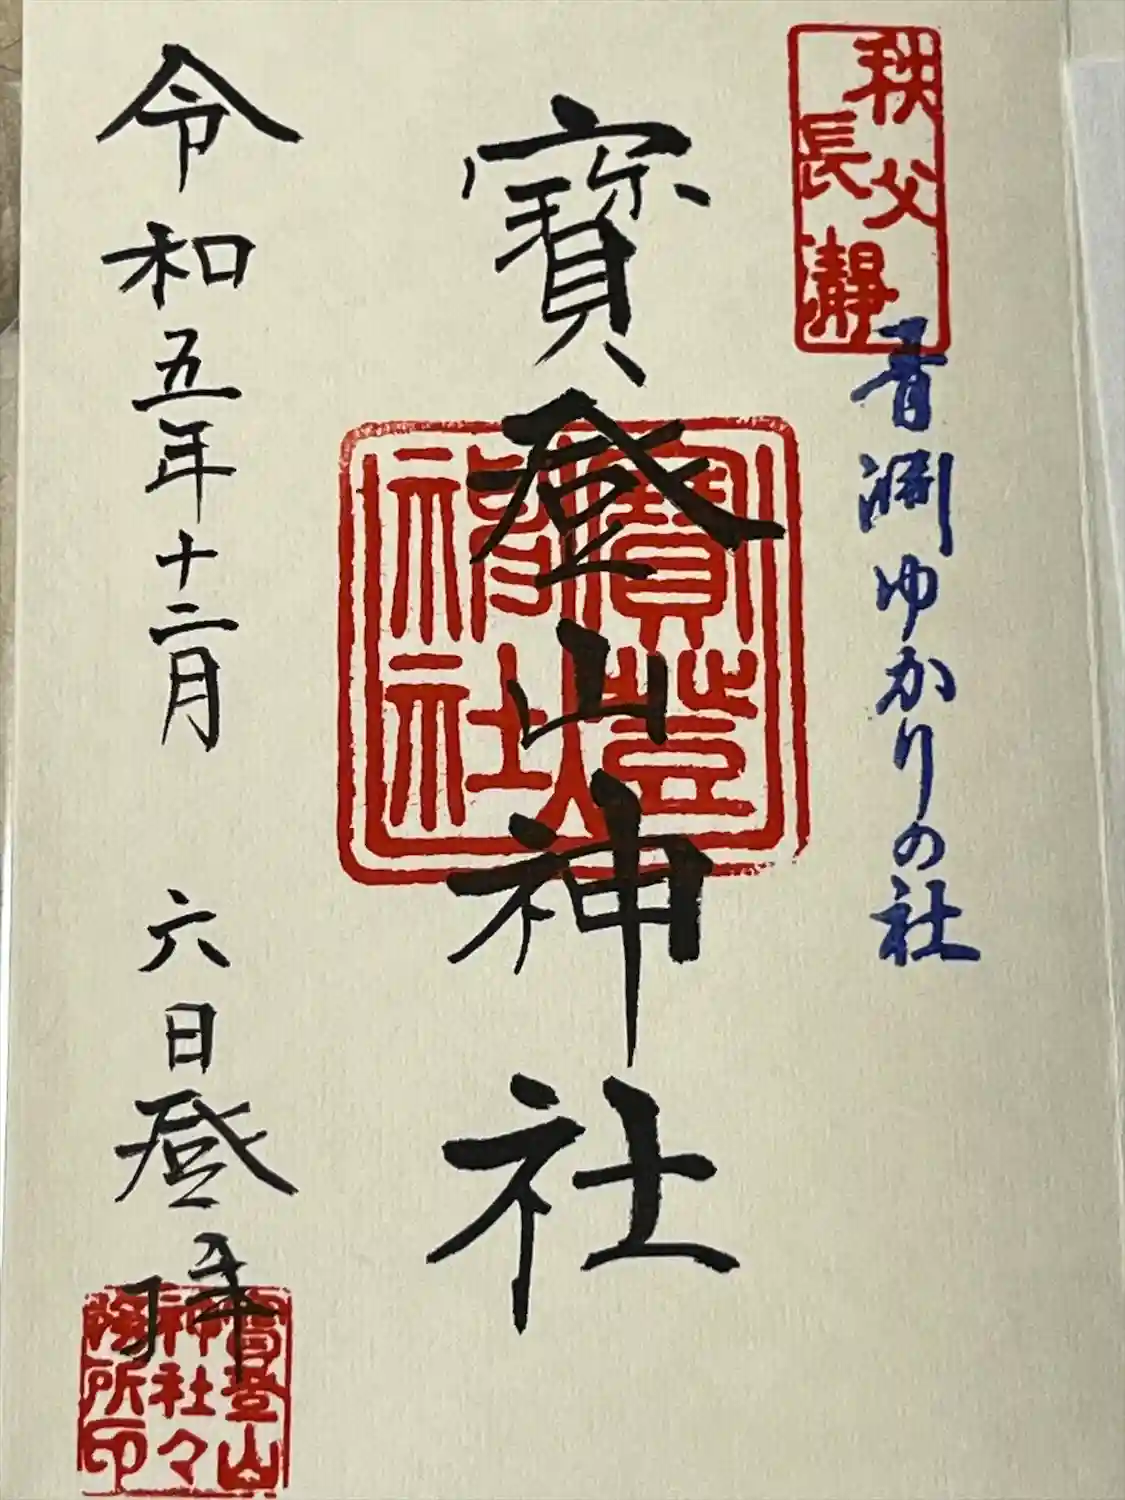 秩父
長瀞
青淵ゆかりの社
寶登山神社
寶登山
神社
令和五年十二月 六日登拝
寶登山
神社々
務所印